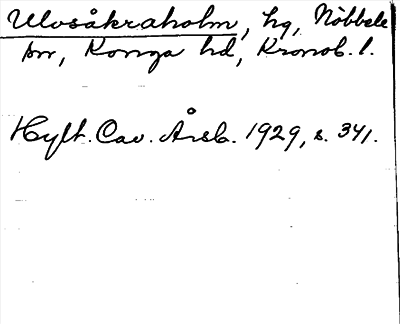 Ulvsåkraholm, hg, Nöbbele
sn, Konga hd, Kronob. l.
Hylt. Cav. Årsb. 1929, s. 341.